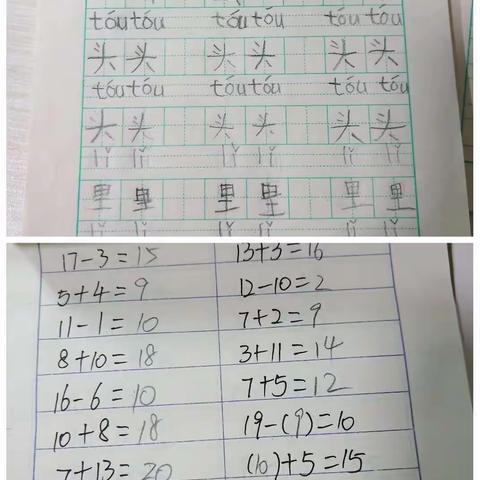 tóu tóu tóu tóu tóu tóu
头 头 头 头 头 头
tóu tóu tóu tóu tóu tóu
头 头 头 头 头 头
lǐ lǐ lǐ lǐ lǐ lǐ
里 里 里 里 里 里
lǐ lǐ lǐ lǐ lǐ lǐ
17-3=15 13+3=16
5+4=9 12-10=2
11-1=10 7+2=9
8+10=18 3+11=14
16-6=10 7+5=12
10+8=18 19-(9)=10
7+13=20 (10)+5=15